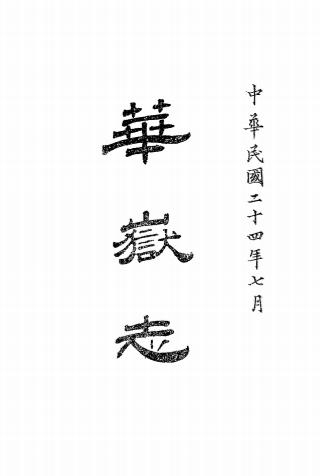 中華民國二十四年七月
華嶽志